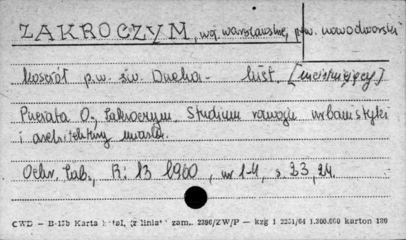 ZAKROCZYM, woj. warszawskie, pow. nowodworski
Kościół p.w. św. Ducha - hist. [nieistniejący]
Pierała O., Zakroczym. Studium rozwoju urbanistyki
i architektury miasta.
Ochr. Zab., R: 13 1960, nr 1-4, s. 23, 24.
CWD — B-13b Karta zam. 2390/ZW/P — kzg 1 2251/64 1.300.000 karton 180